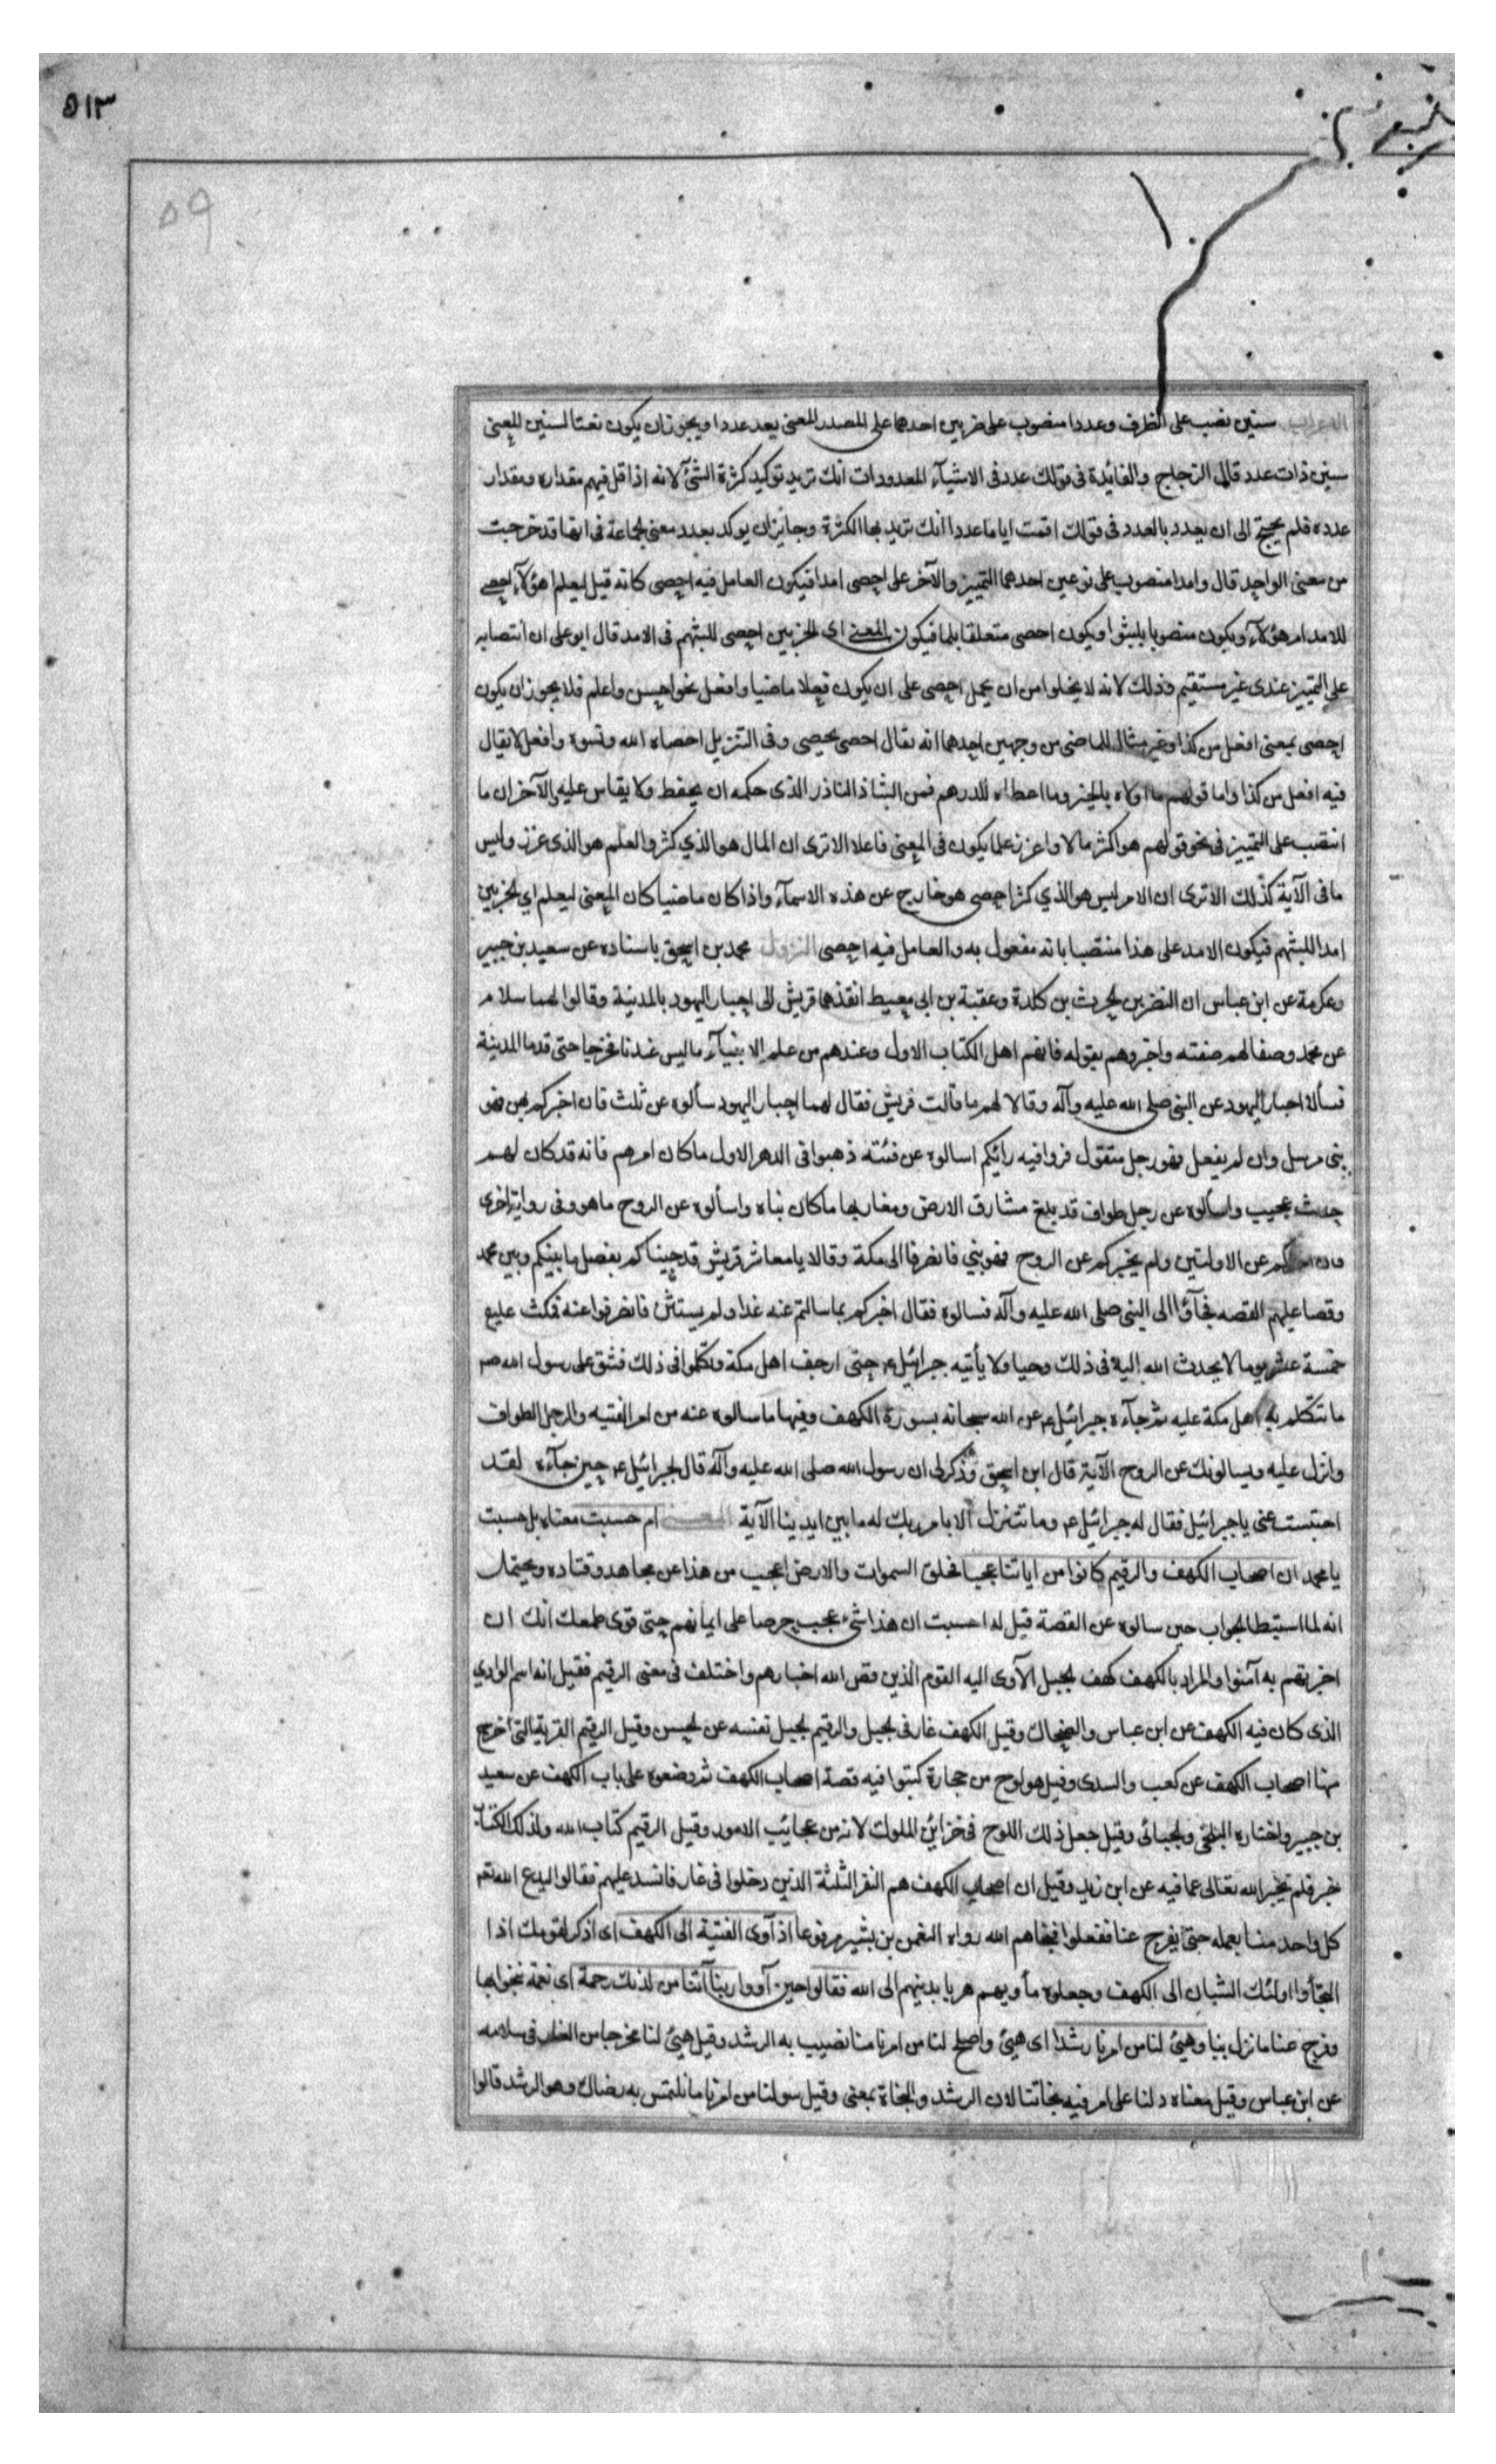 ٥١٣
٥٩
الاعراب سنين نصب على الظرف وعددا منصوب على ضربين احدهما على المصدر المعنى يعد عددا ويجوز ان يكون نعتا لسنين المعنى
سنين ذات عدد قال الزجاج والفائدة فى قولك عدد فى الاشيآء المعدودات انك تريد توكيد كثرة الشئ لانه اذا قل فهم مقداره ومقدار
عدده فلم يحتج الى ان يعدد بالعدد فى قولك اقمت اياما عددا انك تريد بها الكثرة وجائز ان يوكد بعدد معنى الجماعة فى انها قد خرجت
من معنى الواحد قال وامدا منصوب على نوعين احدهما التمييز والآخر على احصى امدا فيكون العامل فيه احصى كانه قيل ليعلم اهؤلآء احصى
للامد ام هؤلآء ويكون منصوبا بلبثوا ويكون احصى متعلقا بلما فيكون المعنى اى الحزبين احصى للبثهم فى الامد قال ابو على ان انتصابه
على التمييز عندى غير مستقيم وذلك لانه لا يخلوا من ان يحمل احصى على ان يكون فعلا ماضيا وافعل نحو احسن واعلم فلا يجوز ان يكون
احصى بمعنى افعل من كذا وغير مثال للماضى من وجهين احدهما انه يقال احصى يحصى وفى التنزيل احصاه الله ونسوه وافعل لا يقال
فيه افعل من كذا واما قولهم ما اولاه بالخير وما اعطاه للدرهم فمن الشاذ النادر الذى حكمه ان يحفظ ولا يقاس عليه والآخر ان ما
انتصب على التمييز فى نحو قولهم هو اكثر مالا واعزز علما يكون فى المعنى فاعلا الا ترى ان المال هو الذي كثر والعلم هو الذى عزز وليس
ما فى الآية كذلك الا ترى ان الامد ليس هو الذي كثر احصى هو خارج عن هذه الاسمآء واذا كان ماضيا كان المعنى ليعلم اي الحزبين
امدا للبثهم فيكون الامد على هذا منتصبا بانه مفعول به والعامل فيه احصى النزول محمد بن اسحق باسناده عن سعيد بن جبير
وعكرمة عن ابن عباس ان النضر بن الحرث بن كلدة وعقبة بن ابى معيط انقذهما قريش الى احبار اليهود بالمدينة وقالوا لهما سلاهم
عن محمد وصفا لهم صفته واخبروهم بقوله فانهم اهل الكتاب الاول وعندهم من علم الانبيآء ما ليس عندنا فخرجا حتى قدما المدينة
فسألا احبار اليهود عن النبى صلى الله عليه وآله وقالا لهم ما قالت قريش فقال لهما احبار اليهود سألوه عن ثلث فان اخبركم بهن فهو
نبى مرسل وان لم يفعل فهو رجل متقول فروا فيه رائكم اسالوه عن فئته ذهبوا فى الدهر الاول ما كان امرهم فانه قد كان لهم
حديث عجيب واسألوه عن رجل طواف قد بلغ مشارق الارض ومغاربها ما كان نباه واسألوه عن الروح ما هو وفى رواية اخرى
فان اخبركم عن الاولتين ولم يخبركم عن الروح فهو نبي فانصرفا الى مكة وقالا يا معاشر قريش قد جيناكم بفصل ما بينكم وبين محمد
وقصا عليهم القصه فجآؤا الى النبى صلى الله عليه وآله فسالوه فقال اخبركم بما سالتم عنه غدا ولم يستثن فانصرفوا عنه فمكث عليع
خمسة عشر يوما لا يحدث الله اليه فى ذلك وحيا ولا يأتيه جبرائيل ع حتى ارجف اهل مكة وتكلموا فى ذلك فشق على رسول الله ص
ما تتكلم به اهل مكة عليه ثم جآءه جبرائيل ع عن الله سبحانه بسورة الكهف وفيها ما سالوه عنه من امر الفتيه والرجل الطواف
وانزل عليه ويسالونك عن الروح الآية قال ابن اسحق فذكر لى ان رسول الله صلى الله عليه وآله قال لجبرائيل ع حين جآءه لقد
احتبست عنى يا جبرائيل فقال له جبرائيل ع وما نتنزل الا بامر ربك له ما بين ايدينا الآية المعنى ام حسبت معناه بل حسبت
يا محمد ان اصحاب الكهف والرقيم كانوا من اياتنا عجبا فخلق السموات والارض اعجب من هذا عن مجاهد وقتاده ويحتمل
انه لما استبطا الجواب حين سالوه عن القصة قيل له احسبت ان هذا شئ عجيب حرصا على ايمانهم حتى قوى طمعك انك ان
اخبرتهم به آمنوا والمراد بالكهف كهف الجبل الآوى اليه القوم الذين قص الله اخبارهم واختلف فى معنى الرقيم فقيل انه اسم الوادي
الذى كان فيه الكهف عن ابن عباس والضحاك وقيل الكهف غار فى الجبل والرقيم الجبل نفسه عن الحسن وقيل الرقيم القرية التى أخرج
منها اصحاب الكهف عن كعب والسدى وقيل هو لوح من حجارة كتبوا فيه قصة اصحاب الكهف ثم وضعوه على باب الكهف عن سعيد
بن جبير واختاره البلخى والجبائى وقيل جعل ذلك اللوح فى خزائن الملوك لانه من عجائب الامور وقيل الرقيم كتاب الله ولذلك الكتاب
خبر فلم يخبر الله تعالى عما فيه عن ابن زيد وقيل ان اصحاب الكهف هم النفر الثلثة الذين دخلوا فى غار فانسد عليهم فقالوا ليدع الله تعم
كل واحد منا بعمله حتى يفرج عنا ففعلوا فنجاهم الله رواه النعمن بن بشير مرفوعا اذ آوى الفتية الى الكهف اى اذكر لقومك اذا
التجأوا اولئك الشبان الى الكهف وجعلوه مأويهم هربا بدينهم الى الله فقالوا حين آووا ربنا آتنا من لدنك رحمة اى نعمة ننجوا بها
وفرج عنا ما نزل بنا وهيئ لنا من امرنا رشدا اى هيئ واصلح لنا من امرنا ما نصيب به الرشد وقيل هيئ لنا مخرجا من الغار فى سلامه
عن ابن عباس وقيل معناه دلنا على امر فيه نجاتنا لان الرشد والنجاة بمعنى وقيل سولنا من امرنا ما نلتمس به رضاك وهو الرشد قالوا